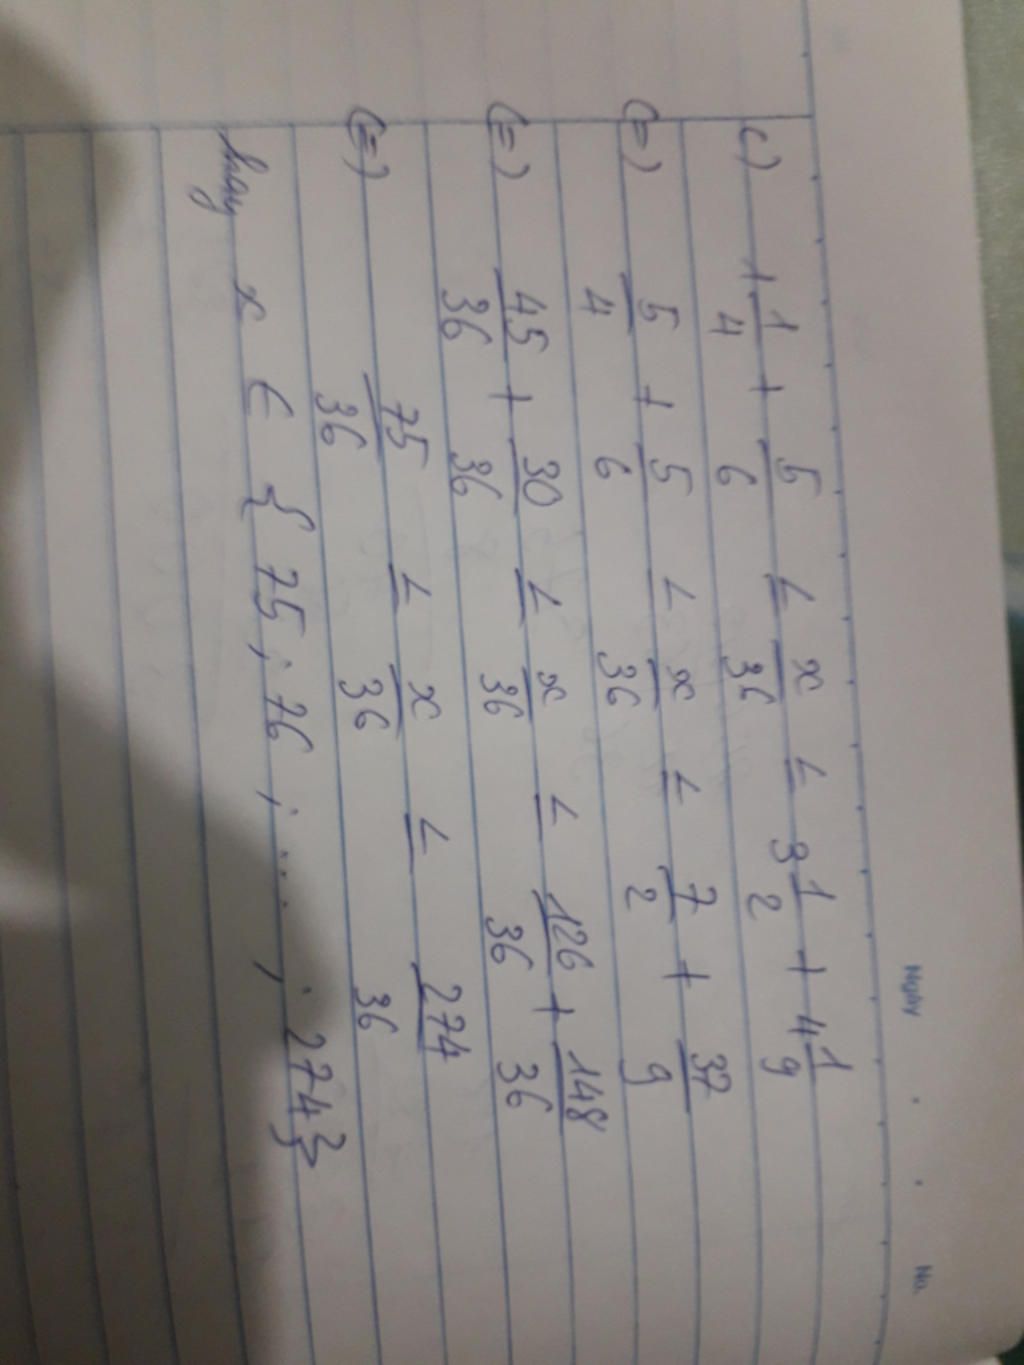 Ngày . . No.
c) 1 1/4 + 5/6 ≤ x/36 ≤ 3 1/2 + 4 1/9
(=) 5/4 + 5/6 ≤ x/36 ≤ 7/2 + 37/9
(=) 45/36 + 30/36 ≤ x/36 ≤ 126/36 + 148/36
(=) 75/36 ≤ x/36 ≤ 274/36
hay x ∈ { 75 ; 76 ; ... ; 274}